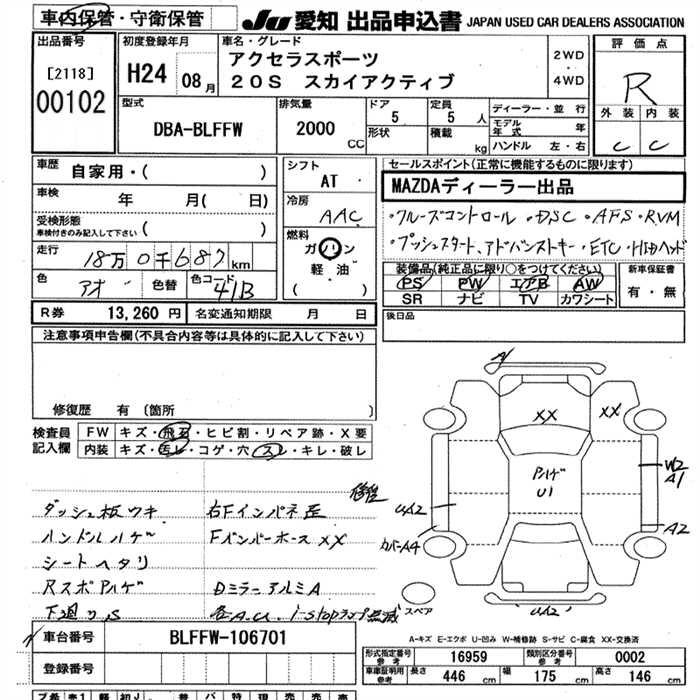 車内保管・守衛保管
JU 愛知 出品申込書 JAPAN USED CAR DEALERS ASSOCIATION
出品番号
[2118]
00102
初度登録年月
H24 08月
車名・グレード
アクセラスポーツ
20S スカイアクティブ
2WD
・
4WD
評価点
R
外装 内装
C C
型式
DBA-BLFFW
排気量
2000
CC
ドア
5
定員
5人
形状
積載
kg
ディーラー・並行
モデル年式 年
ハンドル 左・右
車歴
自家用・( )
車検
年 月( 日)
受検形態
車検付きのみ記入して下さい
( )
走行
18万0千687km
色
アオ
色替
色コード
41B
シフト
AT
冷房
AAC
燃料
ガハン
軽油
( )
セールスポイント(正常に機能するものに限ります)
MAZDAディーラー出品
・クルーズコントロール ・DSC ・AFS ・RVM
・プッシュスタート、アドバンストキー ・ETC ・HIDヘッド
装備品(純正品に限り○をつけてください)
PS PW エアB AW
SR ナビ TV カワシート
新車保証書
有・無
後日品
R券 13,260円
名変通知期限 月 日
注意事項申告欄(不具合内容等は具体的に記入して下さい)
修復歴 有 (箇所 )
検査員記入欄
FW キズ・飛石・ヒビ割・リペア跡・X要
内装 キズ・汚レ・コゲ・穴・スレ・キレ・破レ
修復
ダッシュ板ウキ 右Fインパネ歪
ハンドルハゲ Fバンパーホース XX
シートヘタリ
Rスポハゲ DミラーアルミA
下廻りS
A
XX
XX
ハゲ
U1
W2
A1
UA2
A2
カバーA4
UA2
スペア
A-キズ E-エクボ U-凹み W-補修跡 S-サビ C-腐食 XX-交換済
車台番号
BLFFW-106701
登録番号
形式指定番号 参考 16959
類別区分番号 参考 0002
車庫証明用 参考 長さ 446 cm 幅 175 cm 高さ 146 cm